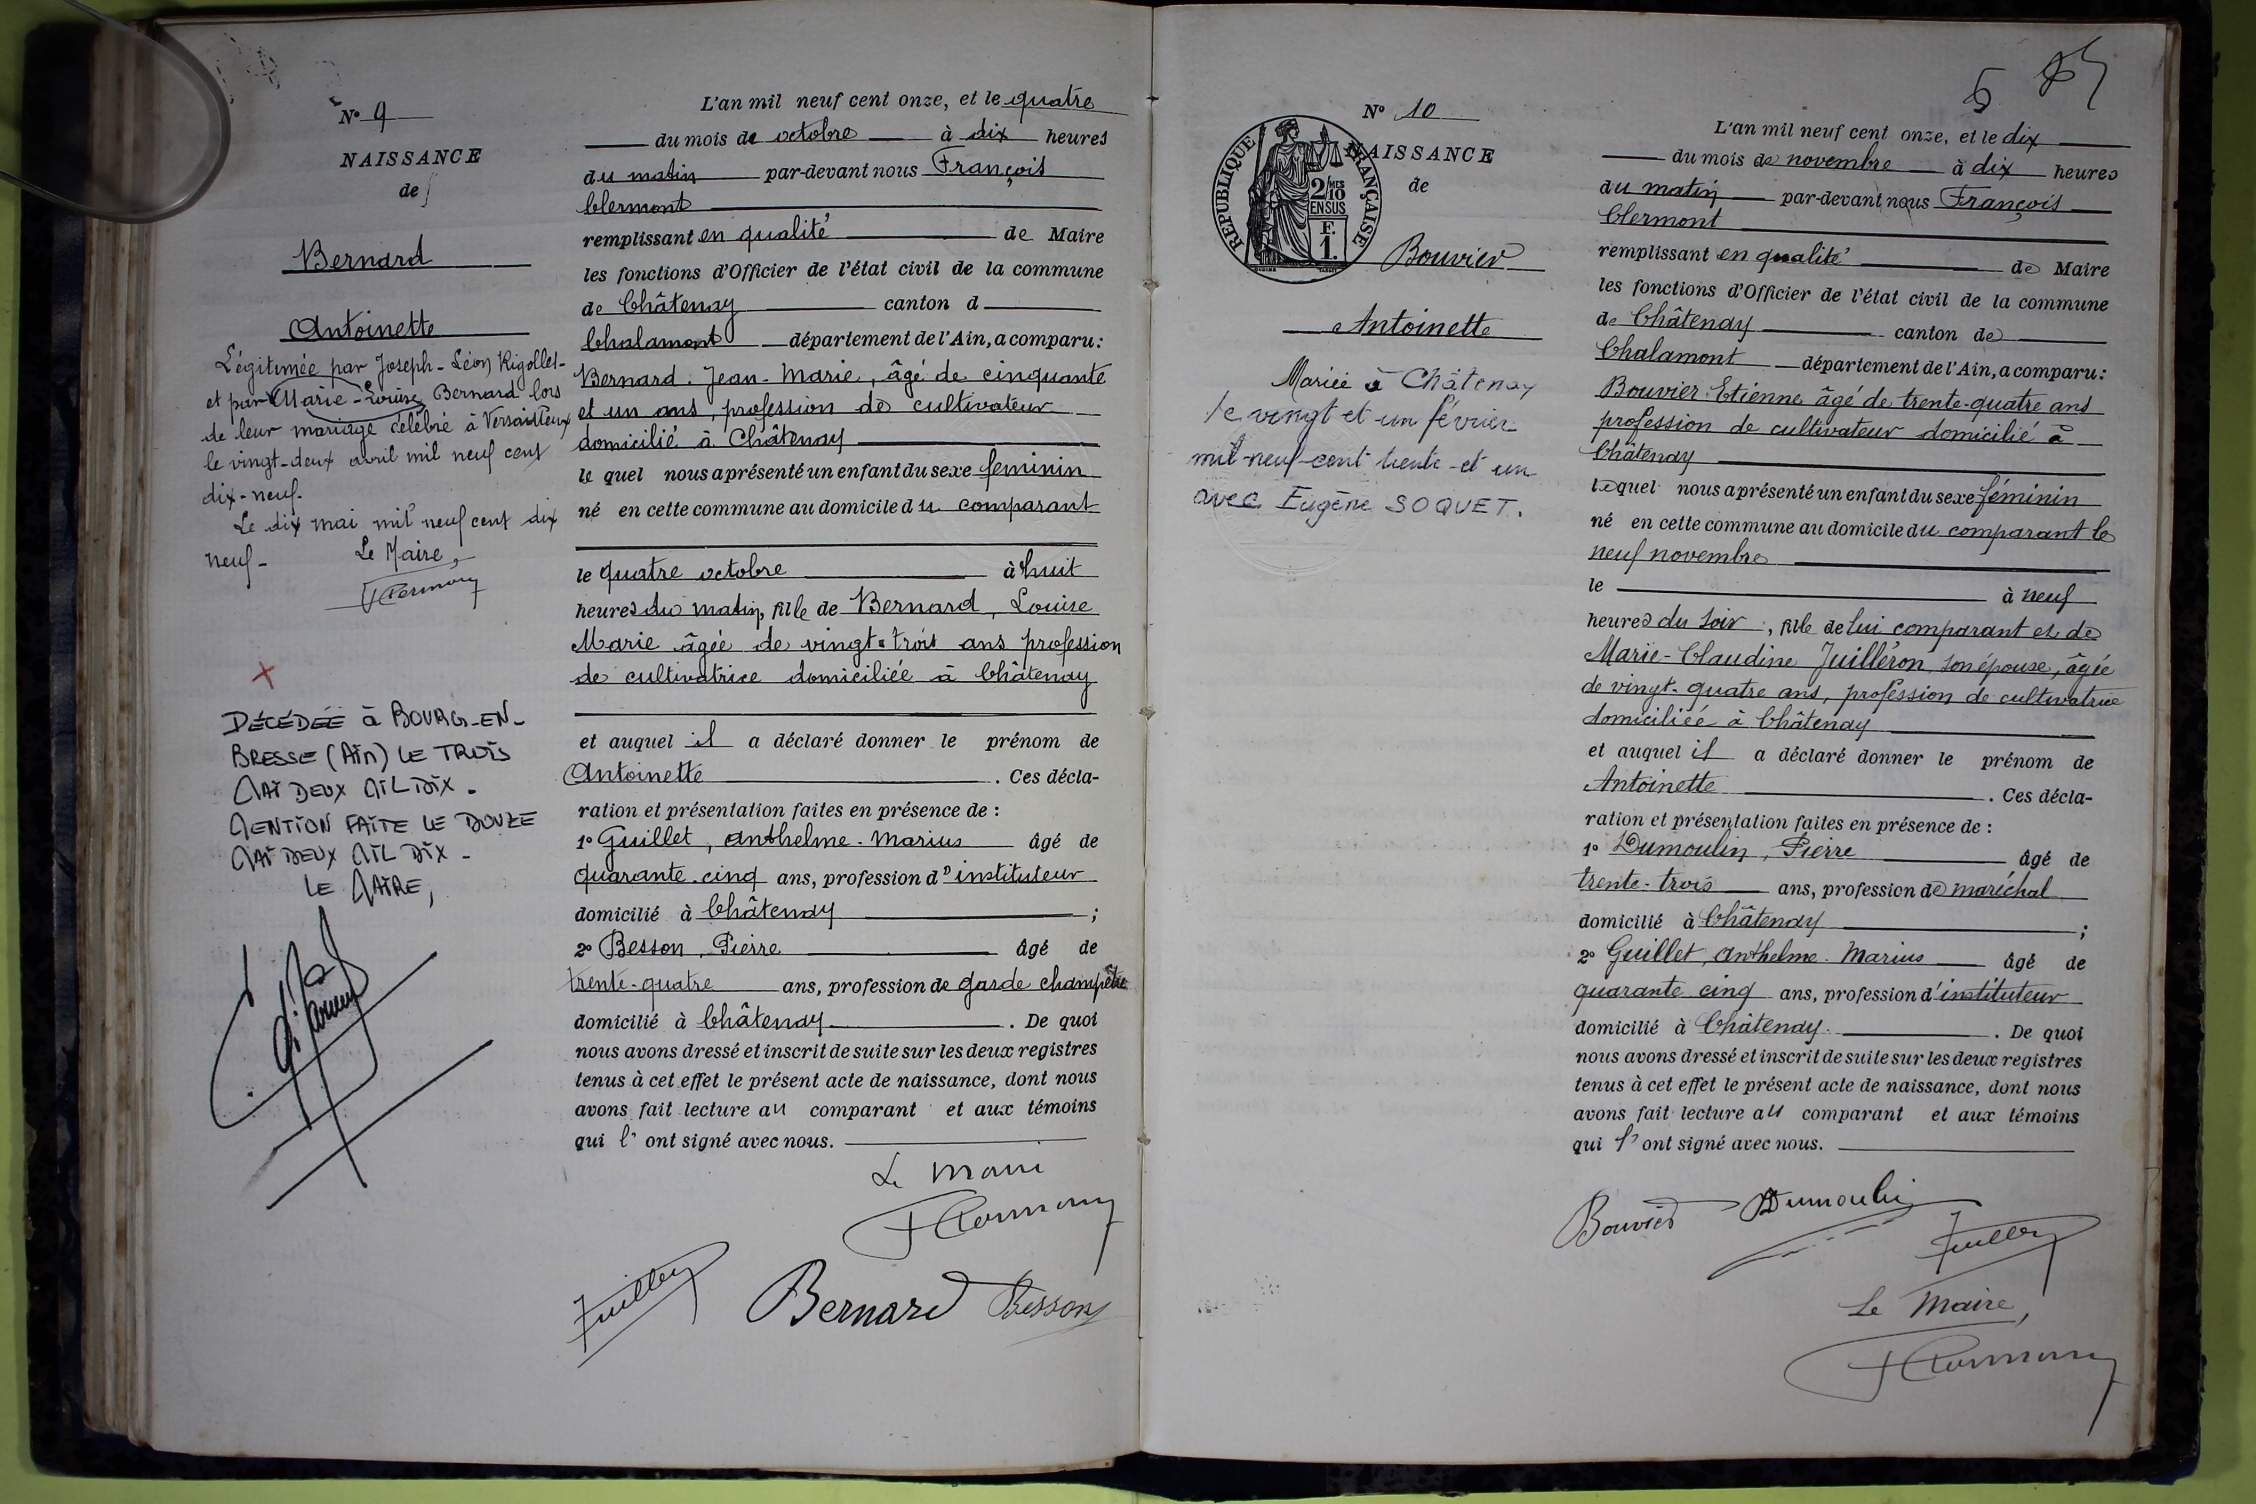 N° 9
NAISSANCE
de
Bernard
Antoinette
Légitimée par Joseph-Léon Rigollet
et par Marie-Louise Bernard lors
de leur mariage célébré à Versailleux
le vingt-deux avril mil neuf cent
dix-neuf.
Le dix mai mil neuf cent dix
neuf-
Le Maire,
FClermont
DÉCÉDÉE à BOURG-EN-
BRESSE (AiN) LE TROiS
MAi DEUX MiL DiX.
MENTiON FAiTE LE DOUZE
MAi DEUX MiL DiX-
LE MAiRE,
L'an mil neuf cent onze, et le quatre
du mois de octobre à dix heures
du matin par-devant nous François
Clermont
remplissant en qualité de Maire
les fonctions d'Officier de l'état civil de la commune
de Châtenay canton d
Chalamont département de l'Ain, a comparu:
Bernard. Jean-Marie, âgé de cinquante
et un ans, profession de cultivateur
domicilié à Châtenay
le quel nous a présenté un enfant du sexe feminin
né en cette commune au domicile du comparant
le quatre octobre à huit
heures du matin, fille de Bernard, Louise
Marie âgée de vingt-trois ans profession
de cultivatrice domiciliée à Châtenay
et auquel il a déclaré donner le prénom de
Antoinette . Ces décla-
ration et présentation faites en présence de :
1° Guillet, Anthelme-Marius âgé de
quarante-cinq ans, profession d'instituteur
domicilié à Châtenay ;
2° Besson, Pierre âgé de
trente-quatre ans, profession de garde champêtre
domicilié à Châtenay . De quoi
nous avons dressé et inscrit de suite sur les deux registres
tenus à cet effet le présent acte de naissance, dont nous
avons fait lecture au comparant et aux témoins
qui l' ont signé avec nous.
Le Maire
FClermont
Guillet
Bernard
Besson
5
N° 10
NAISSANCE
de
RÉPUBLIQUE FRANÇAISE
2/10MES
EN SUS
F.
1.
Bouvier
Antoinette
Mariée à Châtenay
le vingt et un février
mil-neuf-cent trente-et un
avec Eugène SOQUET.
L'an mil neuf cent onze, et le dix
du mois de novembre à dix heures
du matin par-devant nous François
Clermont
remplissant en qualité de Maire
les fonctions d'Officier de l'état civil de la commune
de Châtenay canton de
Chalamont département de l'Ain, a comparu:
Bouvier Etienne âgé de trente-quatre ans
profession de cultivateur domicilié à
Châtenay
lequel nous a présenté un enfant du sexe féminin
né en cette commune au domicile du comparant le
neuf novembre
le à neuf
heures du soir, fille de lui comparant et de
Marie-Claudine Juilléron son épouse, âgée
de vingt-quatre ans, profession de cultivatrice
domiciliée à Châtenay
et auquel il a déclaré donner le prénom de
Antoinette . Ces décla-
ration et présentation faites en présence de :
1° Dumoulin, Pierre âgé de
trente-trois ans, profession de maréchal
domicilié à Châtenay ;
2° Guillet, Anthelme-Marius âgé de
quarante cinq ans, profession d'instituteur
domicilié à Châtenay. . De quoi
nous avons dressé et inscrit de suite sur les deux registres
tenus à cet effet le présent acte de naissance, dont nous
avons fait lecture au comparant et aux témoins
qui l' ont signé avec nous.
Bouvier Dumoulin
Guillet
Le Maire,
FClermont